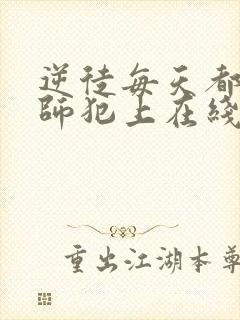 逆徒每天都
师犯上在线
重出江湖本尊